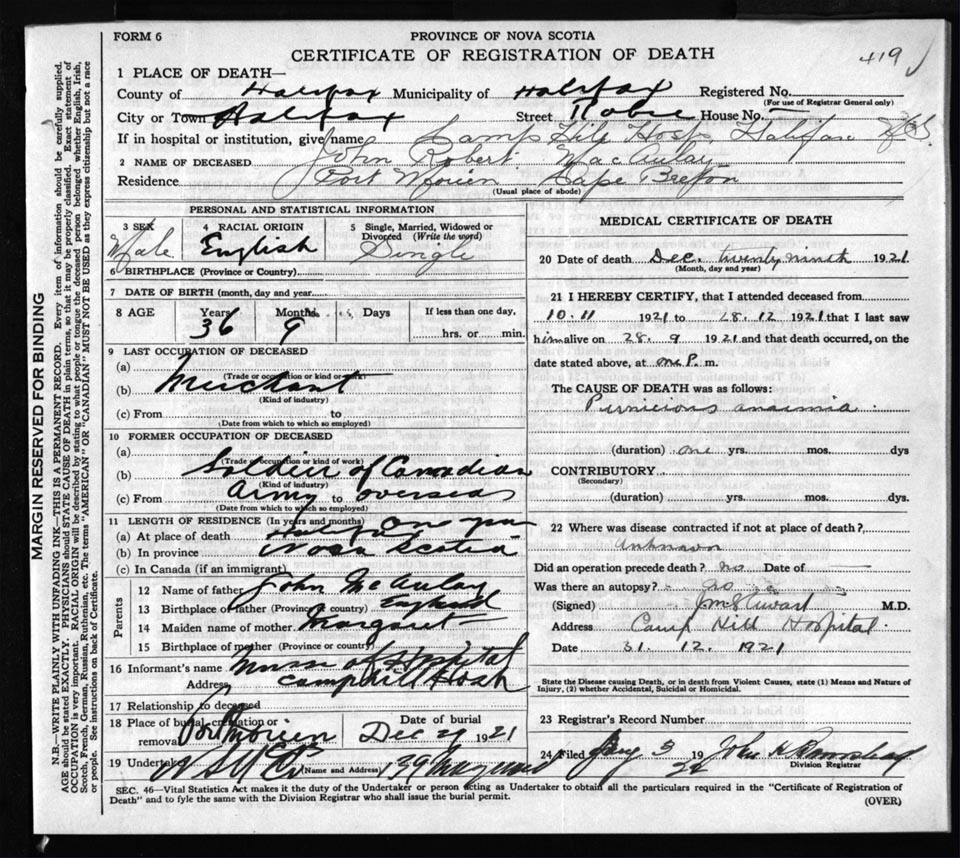 FORM 6
PROVINCE OF NOVA SCOTIA
CERTIFICATE OF REGISTRATION OF DEATH
419
1 PLACE OF DEATH—
County of Halifax Municipality of Halifax Registered No.
(For use of Registrar General only)
City or Town Halifax Street Robie House No.
If in hospital or institution, give name Camp Hill Hosp. Halifax
2 NAME OF DECEASED John Robert MacAulay
Residence Port Morien Cape Breton
(Usual place of abode)
PERSONAL AND STATISTICAL INFORMATION
3 SEX Male
4 RACIAL ORIGIN English
5 Single, Married, Widowed or Divorced (Write the word) Single
6 BIRTHPLACE (Province or Country)
7 DATE OF BIRTH (month, day and year
8 AGE Years 36 Months 9 Days If less than one day, hrs. or min.
9 LAST OCCUPATION OF DECEASED
(a)
(Trade or occupation or kind of work)
(b) Merchant
(Kind of industry)
(c) From to
(Date from which to which so employed)
10 FORMER OCCUPATION OF DECEASED
(a)
(Trade or occupation or kind of work)
(b) Soldier of Canadian
(Kind of industry)
(c) From Army to overseas
(Date from which to which so employed)
11 LENGTH OF RESIDENCE (In years and months)
(a) At place of death One
(b) In province Nova Scotia
(c) In Canada (if an immigrant)
Parents
12 Name of father John McAulay
13 Birthplace of father (Province or country) England
14 Maiden name of mother Margaret
15 Birthplace of mother (Province or country)
16 Informant's name Nurse of Hospital
Address Camp Hill Hosp
17 Relationship to deceased
18 Place of burial, cremation or removal Port Morien Date of burial Dec 1921
19 Undertaker
(Name and Address)
MEDICAL CERTIFICATE OF DEATH
20 Date of death Dec. twenty ninth 1921
(Month, day and year)
21 I HEREBY CERTIFY, that I attended deceased from
10.11 1921 to 28.12 1921 that I last saw
him alive on 28. 9 1921 and that death occurred, on the
date stated above, at one P. m.
The CAUSE OF DEATH was as follows:
Pernicious anaemia
(duration) one yrs. mos. dys
CONTRIBUTORY
(Secondary)
(duration) yrs. mos. dys.
22 Where was disease contracted if not at place of death?
Unknown
Did an operation precede death? no Date of —
Was there an autopsy? no
(Signed) J M Stewart M.D.
Address Camp Hill Hospital
Date 31. 12. 1921
State the Disease causing Death, or in death from Violent Causes, state (1) Means and Nature of Injury, (2) whether Accidental, Suicidal or Homicidal.
23 Registrar's Record Number
24 Filed 3 19 22 John H
Division Registrar
SEC. 46—Vital Statistics Act makes it the duty of the Undertaker or person acting as Undertaker to obtain all the particulars required in the "Certificate of Registration of
Death" and to fyle the same with the Division Registrar who shall issue the burial permit.
(OVER)
MARGIN RESERVED FOR BINDING
N.B.—WRITE PLAINLY WITH UNFADING INK—THIS IS A PERMANENT RECORD. Every item of information should be carefully supplied.
AGE should be stated EXACTLY. PHYSICIANS should STATE CAUSE OF DEATH in plain terms, so that it may be properly classified. Exact statement of
OCCUPATION is very important. RACIAL ORIGIN will be described by stating to what people or tongue the deceased person belonged whether English, Irish,
Scotch, French, German, Russian, Ruthenian, etc. The terms "AMERICAN" OR "CANADIAN" MUST NOT BE USED as they express citizenship but not a race
or people. See instructions on back of Certificate.